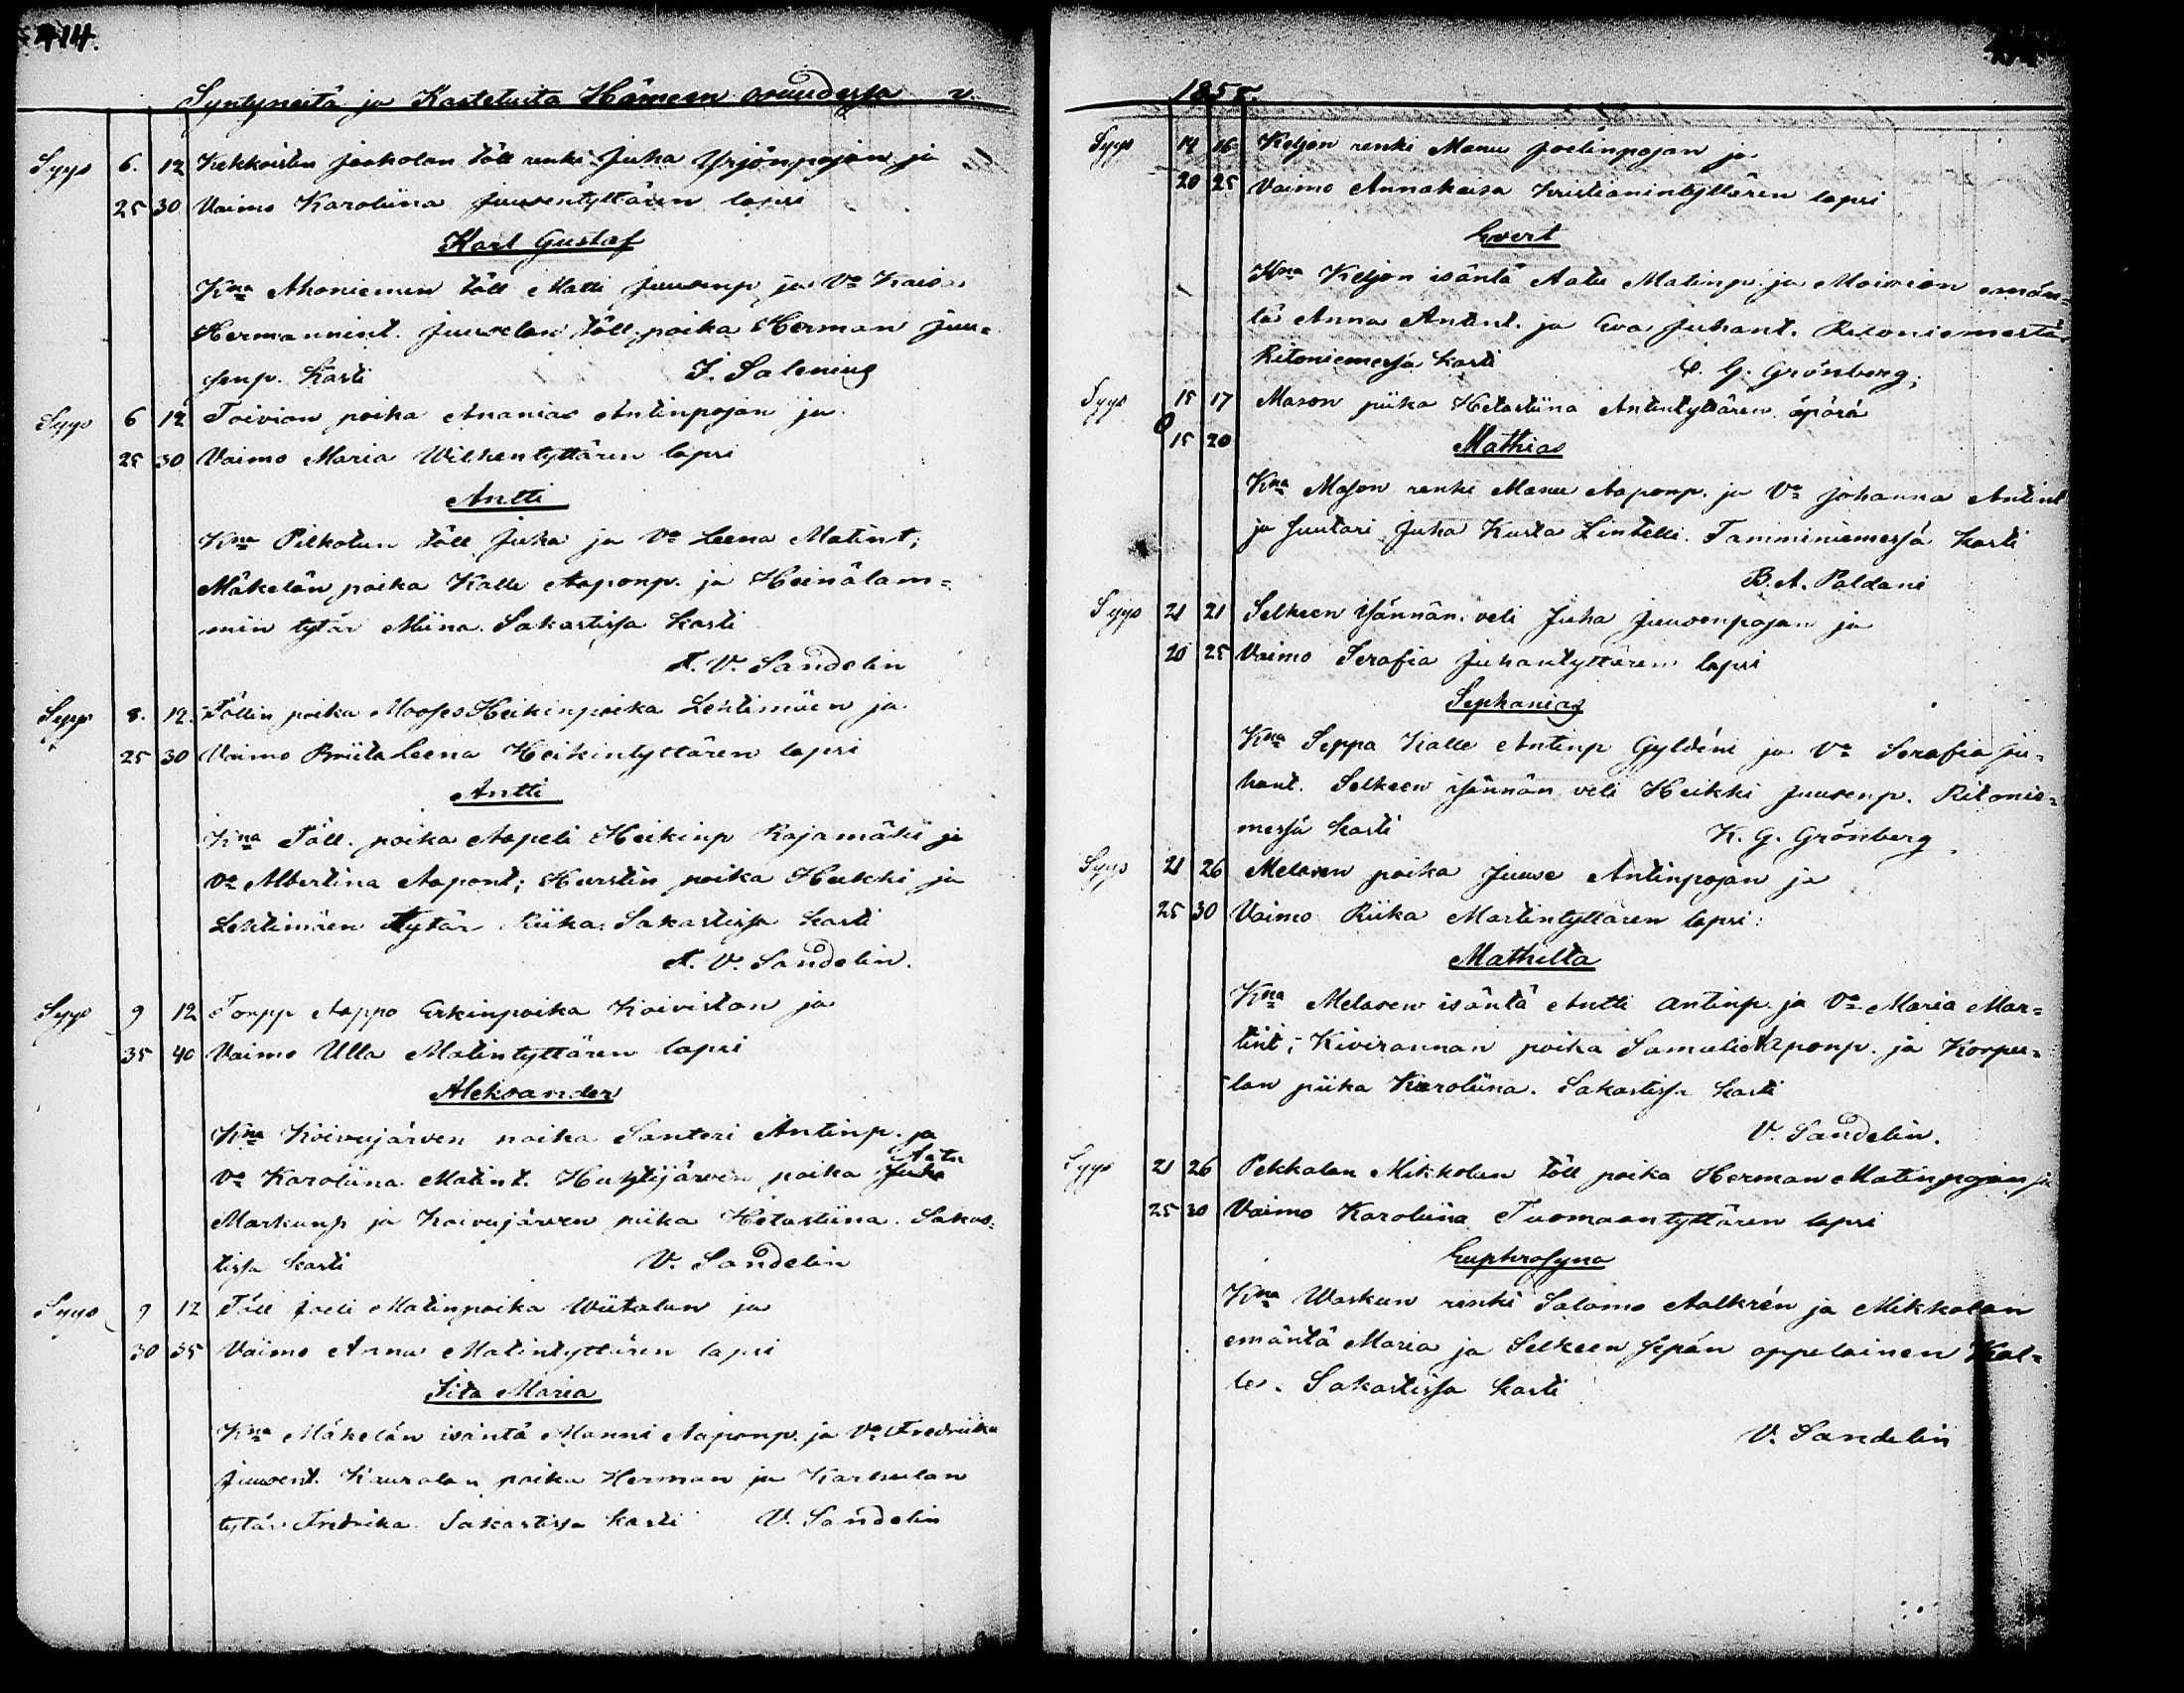 414.
Syntyneitä ja Kasteltuita Hämeen osuudessa v.
Syys 6. 12 Kekkoisten Jaakolan töll renki Juha Yrjönpojan ja
25 30 Vaimo Karoliina Juusentyttären lapsi
Karl Gustaf
Kna Ahoniemen töll Matti Juusenp ja Vo Kaisa
Hermannint. Juuselan töll. poika Herman Juu=
senp. Kasti J. Salenius
Syys 6 12 Toivion poika Ananias Antinpojan ja
25 30 Vaimo Maria Wilhentyttären lapsi
Antti
Kna Pilkotun töll Juha ja Vo Leena Matint;
Mäkelän poika Kalle Aaponp. ja Heinälam=
min tytär Miina. Sakastissa kasti
A. V. Sandelin
Syys 8. 12. Töllin poika Mooses Heikinpoika Lehtimäen ja
25 30 Vaimo Briita Leena Heikintyttären lapsi
Antti
Kna Töll. poika Aapeli Heikinp Rajamäki ja
Vo Albertina Aapont; Hurstin poika Heikki ja
Lehtimäen tytär Riika. Sakastissa kasti
A. V. Sandelin.
Syys 9 12 Torpp Aappo Erkinpoika Koiviston ja
35 40 Vaimo Ulla Matintyttären lapsi
Aleksander
Kna Koivujärven poika Santeri Antinp. ja
Aatu
Vo Karoliina Matint. Huhtijärven poika Juha
Markunp ja Koivujärven piika Hetastiina. Sakas=
tissa kasti V. Sandelin
Syys 9 12 Töll Joeli Matinpoika Wiitalan ja
30 35 Vaimo Anna Matintyttären lapsi
Iita Maria
Kna Mäkelän isäntä Manni Aaponp. ja Vo Fredriika
Juusent. Kauralan poika Herman ja Karhulan
tytär Fredrika. Sakastissa kasti V. Sandelin
185
Syys 14 16 Keljon renki Manu Joelinpojan ja
20 25 Vaimo Annakaisa Kristianintyttären lapsi
Evert
Kna Keljon isäntä Aatu Matinp. ja Moision emän=
tä Anna Antint. ja Eva Juhant. Ritoniemestä
Ritoniemessä kasti K. G. Grönberg;
Syys 15 17 Mason piika Hetastiina Antintyttären äpärä
15 20 Mathias
Kna Mason renki Manu Aaponp. ja Vo Johanna Antint
ja Suutari Juha Kusta Lintelli. Tamminiemessä kasti
B. A. Paldani
Syys 21 21 Selkeen isännän veli Juha Juusenpojan ja
20 25 Vaimo Serafia Juhantyttären lapsi
Sephanias
Kna Seppä Kalle Antinp Gyldéni ja Vo Serafia Ju=
hant. Selkeen isännän veli Heikki Juusenp. Ritonie=
messä kasti K. G. Grönberg
Syys 21 26 Melasen poika Juuse Antinpojan ja
25 30 Vaimo Riika Martintyttären lapsi:
Mathilta
Kna Melasen isäntä Antti Antinp. ja Vo Maria Mar=
tint; Kivirannan poika Samuli Aaponp. ja Korpu=
lan piika Karoliina. Sakastissa kasti
V. Sandelin.
Syys 21 26 Pekkalan Mikkolan töll poika Herman Matinpojan ja
25 30 Vaimo Karoliina Tuomaantyttären lapsi
Euphrosyna
Kna Waskun renki Salomo Aalkrén ja Mikkolan
emäntä Maria ja Selkeen sepän oppelainen Kal=
le. Sakastissa kasti
V. Sandelin